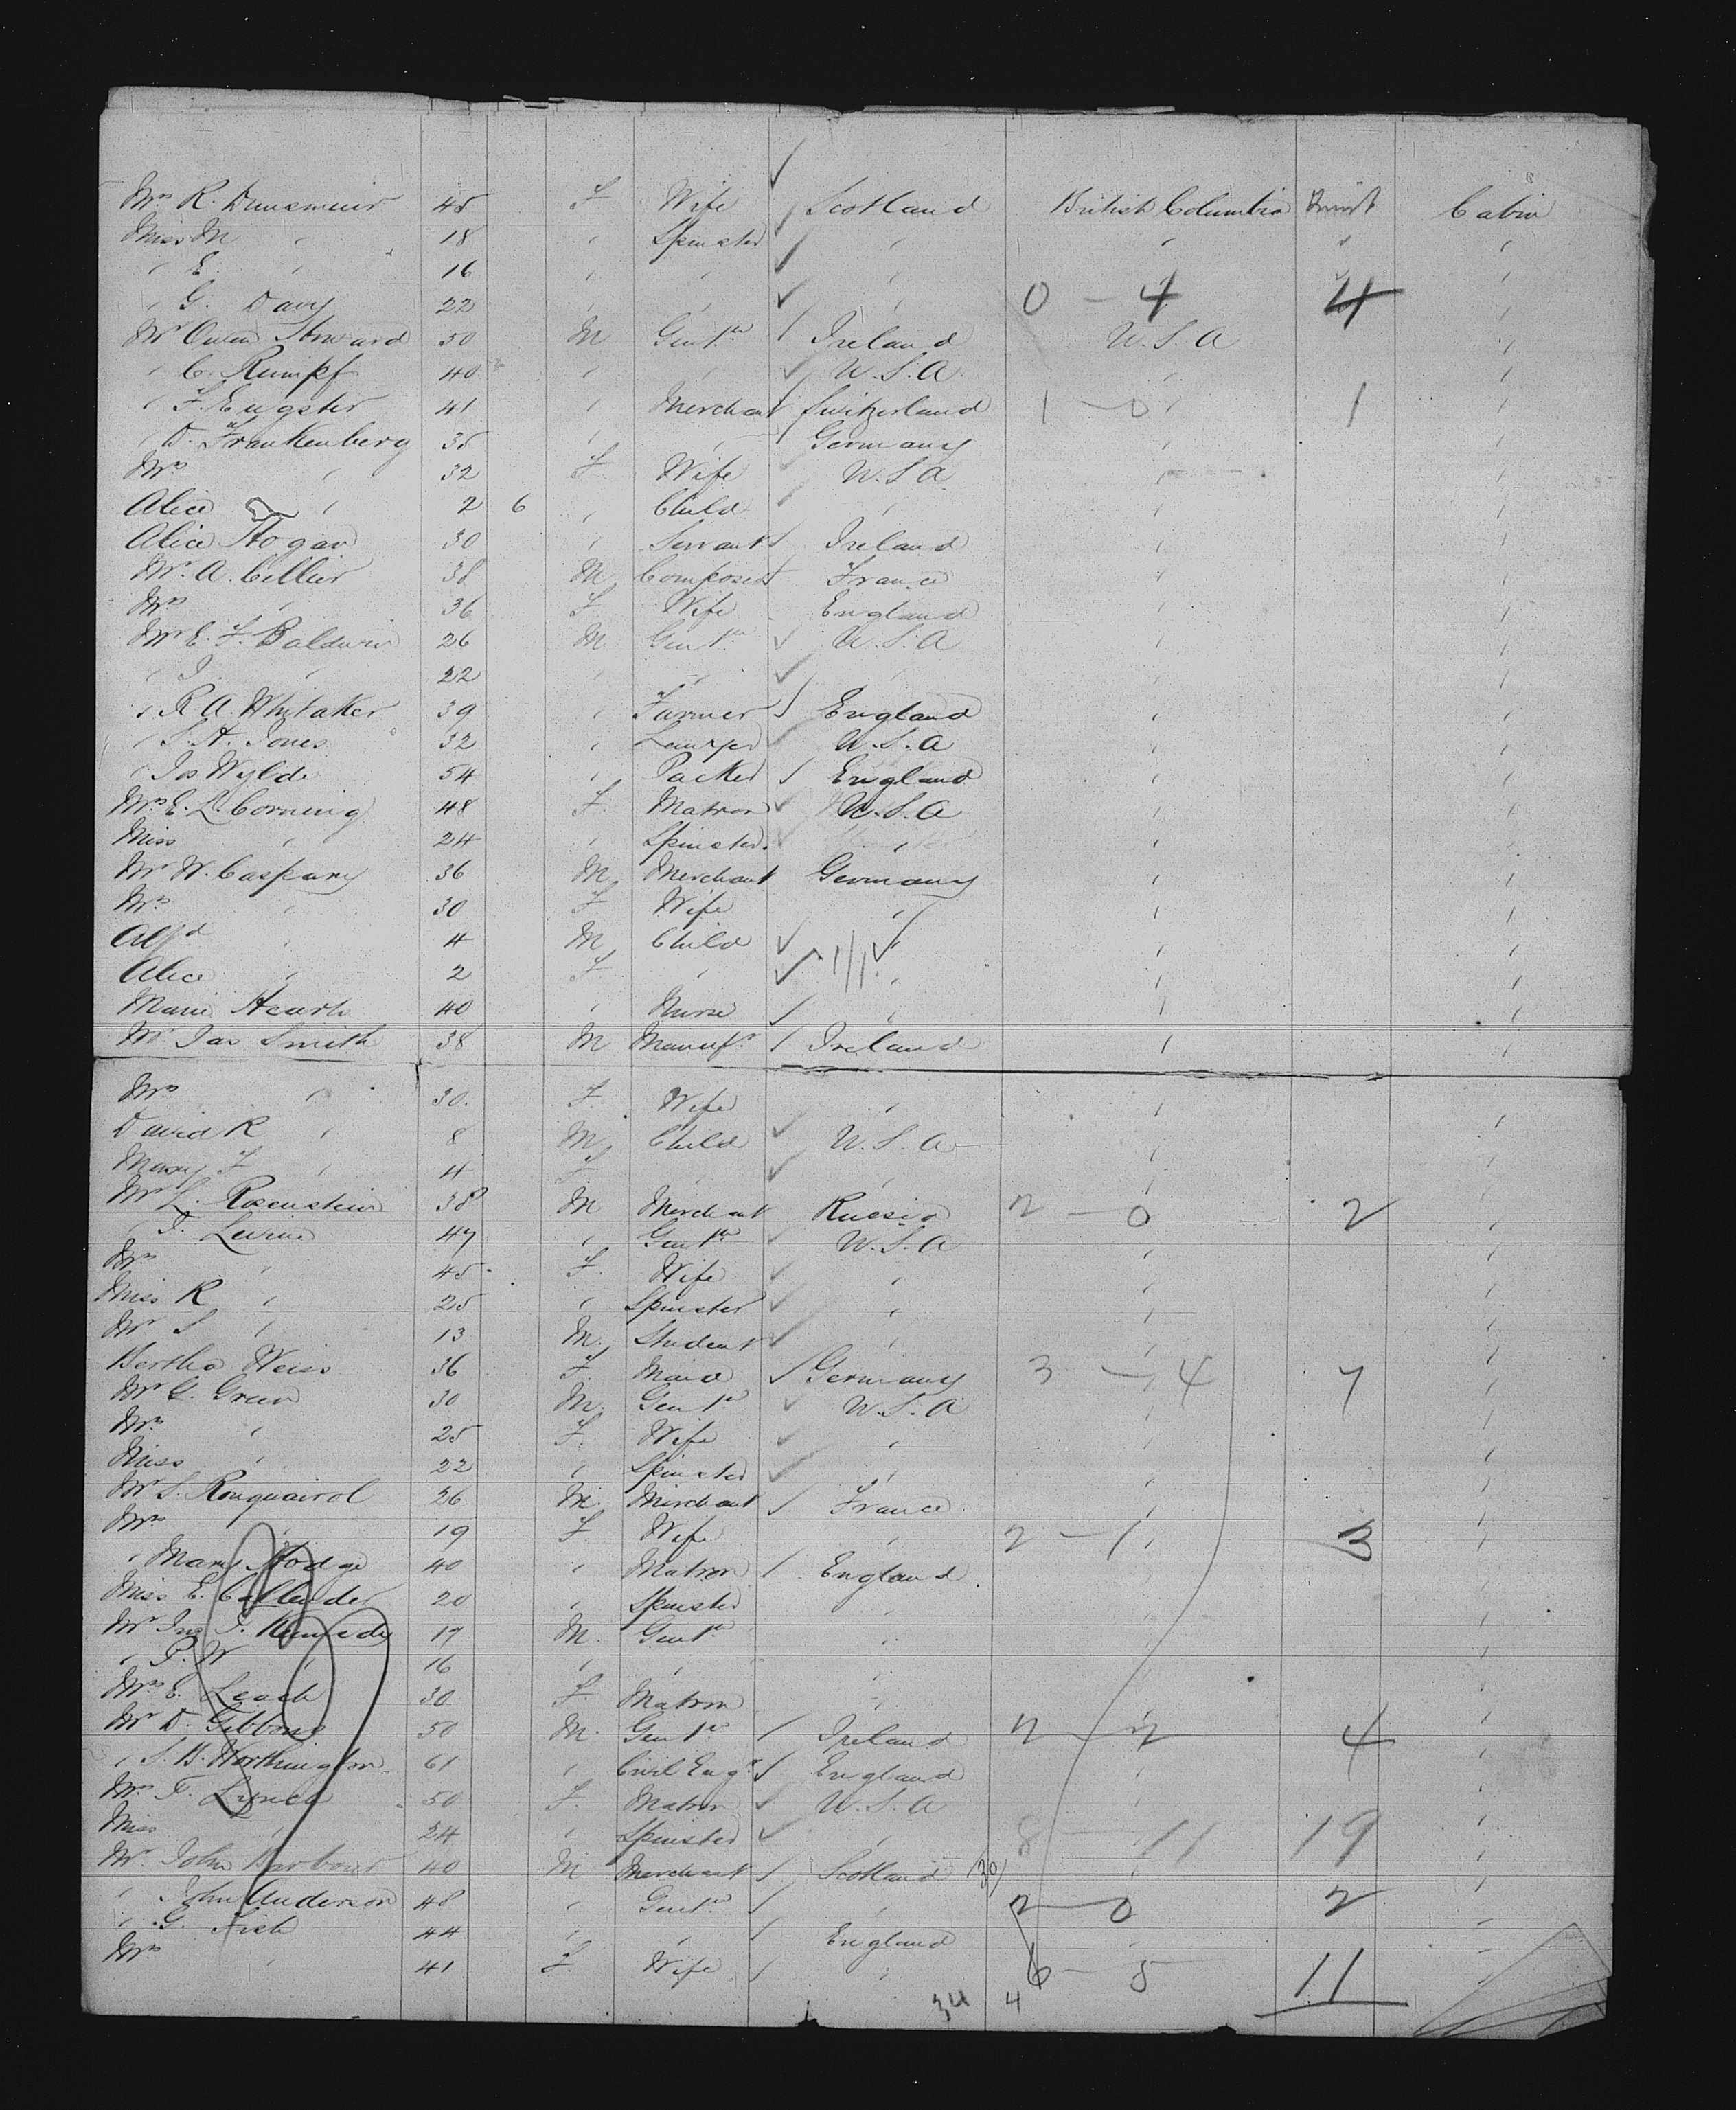 Mrs R. Dunsmuir 45 F Wife Scotland British Columbia Transit Cabin
Miss M " 18 " Spinster " " " "
" E. " 16 " " " "
" G. Davy 22 " " " 0 - 4 4 "
Mr Owen 50 M Gent. Ireland U.S.A "
" C. Rumpf 40 " " U.S.A " "
" F. Eugster 41 " Merchant Switzerland 1 - 0 1 "
" D. Frankenberg 35 " " Germany " "
Mrs " 32 F Wife U.S.A " "
Alice " 2 6 " Child " " "
Alice Hogan 30 " Servant Ireland " "
Mr. A. Cellier 38 M Composer France " "
Mrs " 36 F Wife England " "
Mr E. F. Baldwin 26 M Gent. U.S.A " "
" J. " 22 " " " " "
" R. A. Whitaker 39 " Farmer England " "
" S. A. Jones 32 " Lawyer U.S.A " "
" Jos Wylde 54 " Packer England " "
Mrs E. L. Corning 48 F. Matron U.S.A " "
Miss " 24 " Spinster " " "
Mr W. Caspary 36 M Merchant Germany " "
Mrs " 30 F Wife " " "
Alfd " 4 M Child " " "
Alice " 2 F " " " "
Marie 40 " Nurse " " "
Mr Jas Smith 38 M Manufr Ireland " "
Mrs " 30 F Wife " " "
David R " 8 M Child U.S.A " "
Mary F " 4 F " " " "
Mr L. Rosenstein 38 M Merchant Russia 2 - 0 2 "
" Levine 47 " Gent. U.S.A " "
Mrs " 45 F. Wife " " "
Miss R " 25 " Spinster " " "
Mr S " 13 M. Student " " "
Bertha Weiss 36 F. Maid Germany 3 - 4 7 "
Mr G. Green 30 M. Gent. U.S.A " "
Mrs " 25 F. Wife " " "
Miss " 22 " Spinster " " "
Mr S. Rouquairol 26 M. Merchant France " "
Mrs " 19 F. Wife " 2 - 1 3 "
" Mary Hodge 40 " Matron England "
Miss E. Callender 20 " Spinster " "
Mr Jno J. Kennedy 17 M. Gent. " "
" P. W " 16 " " " "
Mrs E. Leach 30 F. Matron " "
Mr D. Gibbons 50 M. Gent. Ireland 2 - 2 4 "
" S. B. Worthington 61 " Civil Engr England " "
Mrs F. Lynch 50 F. Matron U.S.A " "
Miss " 24 " Spinster " 8 - 11 19 "
Mr. John Barbour 40 M Merchant Scotland 30 " "
" John Anderson 48 " Gent. " 2 - 0 2 "
" G. Fish 44 " " England " "
Mrs " 41 F. Wife " 6 - 5 11 "
34 4